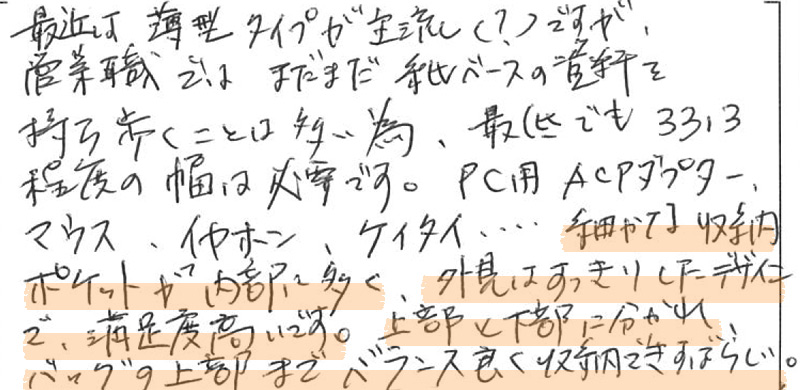 最近は薄型タイプが主流し(?)ですが、
営業職ではまだまだ紙ベースの資料を
持ち歩くことは多い為、最低でも33,3
程度の幅は必要です。PC用ACアダプター、
マウス、イヤホン、ケイタイ・・・・細かな収納
ポケットが内部に多く、外見はすっきりしたデザイン
で、満足度高いです。上部と下部に分かれ、
バッグの上部までバランス良く収納できすばらしい。